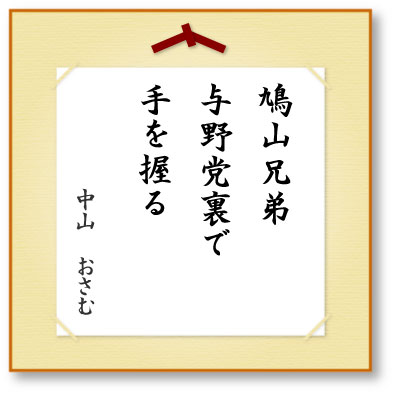 鳩山兄弟
与野党裏で
手を握る
中山 おさむ